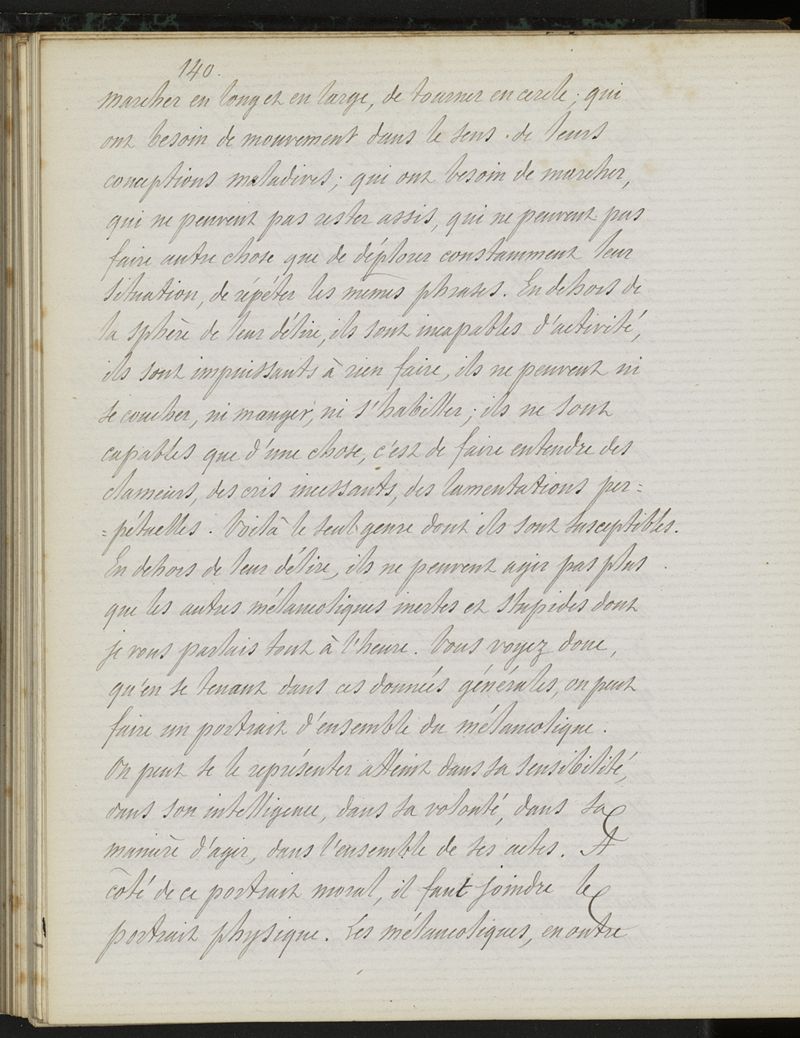 140.
marcher en long et en large, de tourner en cercle ; qui
ont besoin de mouvement dans le sens de leurs
conceptions maladives ; qui ont besoin de marcher,
qui ne peuvent pas rester assis, qui ne peuvent pas
faire autre chose que de déplorer constamment leur
situation, de répéter les mêmes phrases. En dehors de
la sphère de leur délire, ils sont incapables d'activité,
ils sont impuissants à rien faire, ils ne peuvent ni
se coucher, ni manger, ni s'habiller ; ils ne sont
capables que d'une chose, c'est de faire entendre des
clameurs, des cris incessants, des lamentations per=
=pétuelles. Voilà le seul genre dont ils sont susceptibles.
En dehors de leur délire, ils ne peuvent agir pas plus
que les autres mélancoliques inertes et stupides dont
je vous parlais tout à l'heure. Vous voyez donc,
qu'en se tenant dans ces données générales, on peut
faire un portrait d'ensemble du mélancolique.
On peut se le représenter atteint dans sa sensibilité,
dans son intelligence, dans sa volonté, dans sa
manière d'agir, dans l'ensemble de ses actes. A
côté de ce portrait moral, il faut joindre le
portrait physique. Les mélancoliques, en outre